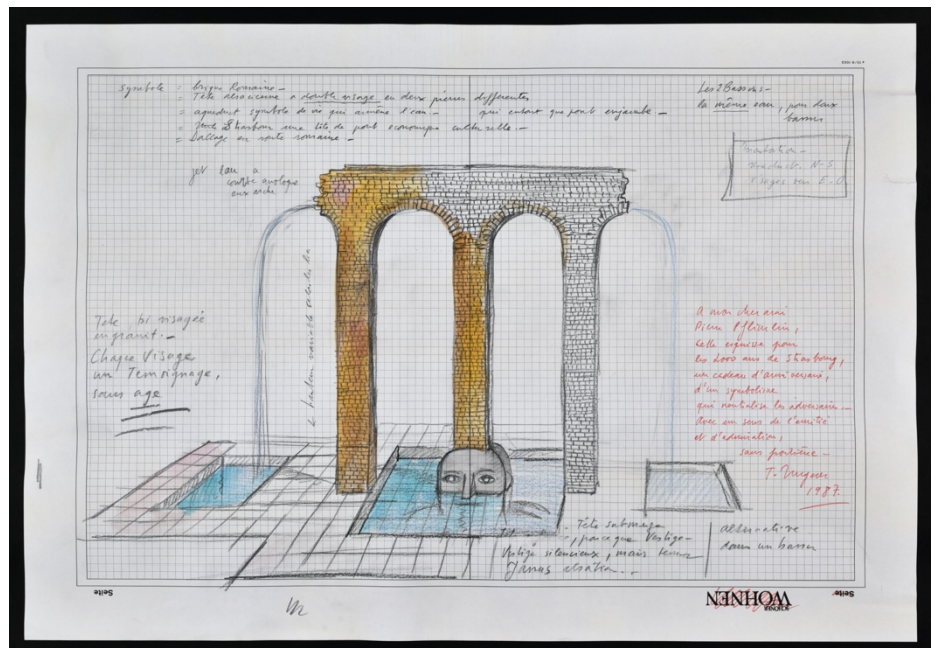 symbole = brique Romaine -
= Tête alsacienne a double visage en deux pierres differentes
= aqueduct symbole de vie qui amène l'eau - qui entant que pont enjambe -
= Strasbourg une tête de pont economique culturelle -
= Dallage en route romaine -
Les 3 Bassins -
la même eau, pour deux
bassins
Orientation -
N-S
Visages vers E-O
jet d'eau a
courbe analogue
aux arches
Tete bi visagée
en granit -
Chaque Visage
un Temoignage,
sans age
A mon cher ami
Pierre Pflimlin,
cette esquisse pour
les 2000 ans de Strasbourg,
un cadeau d'anniversaire,
d'un symbolisme
qui neutralise les adversaires -
Avec un sens de l'amitié
et d'admiration,
sans frontière -
T. Ungerer
1987
Tête submergée
, parce que Vestige -
Vestige silencieux, mais temoin
Janus alsacien -
alternative
dans un bassin
Seite
SCHÖNER
WOHNEN
Seite